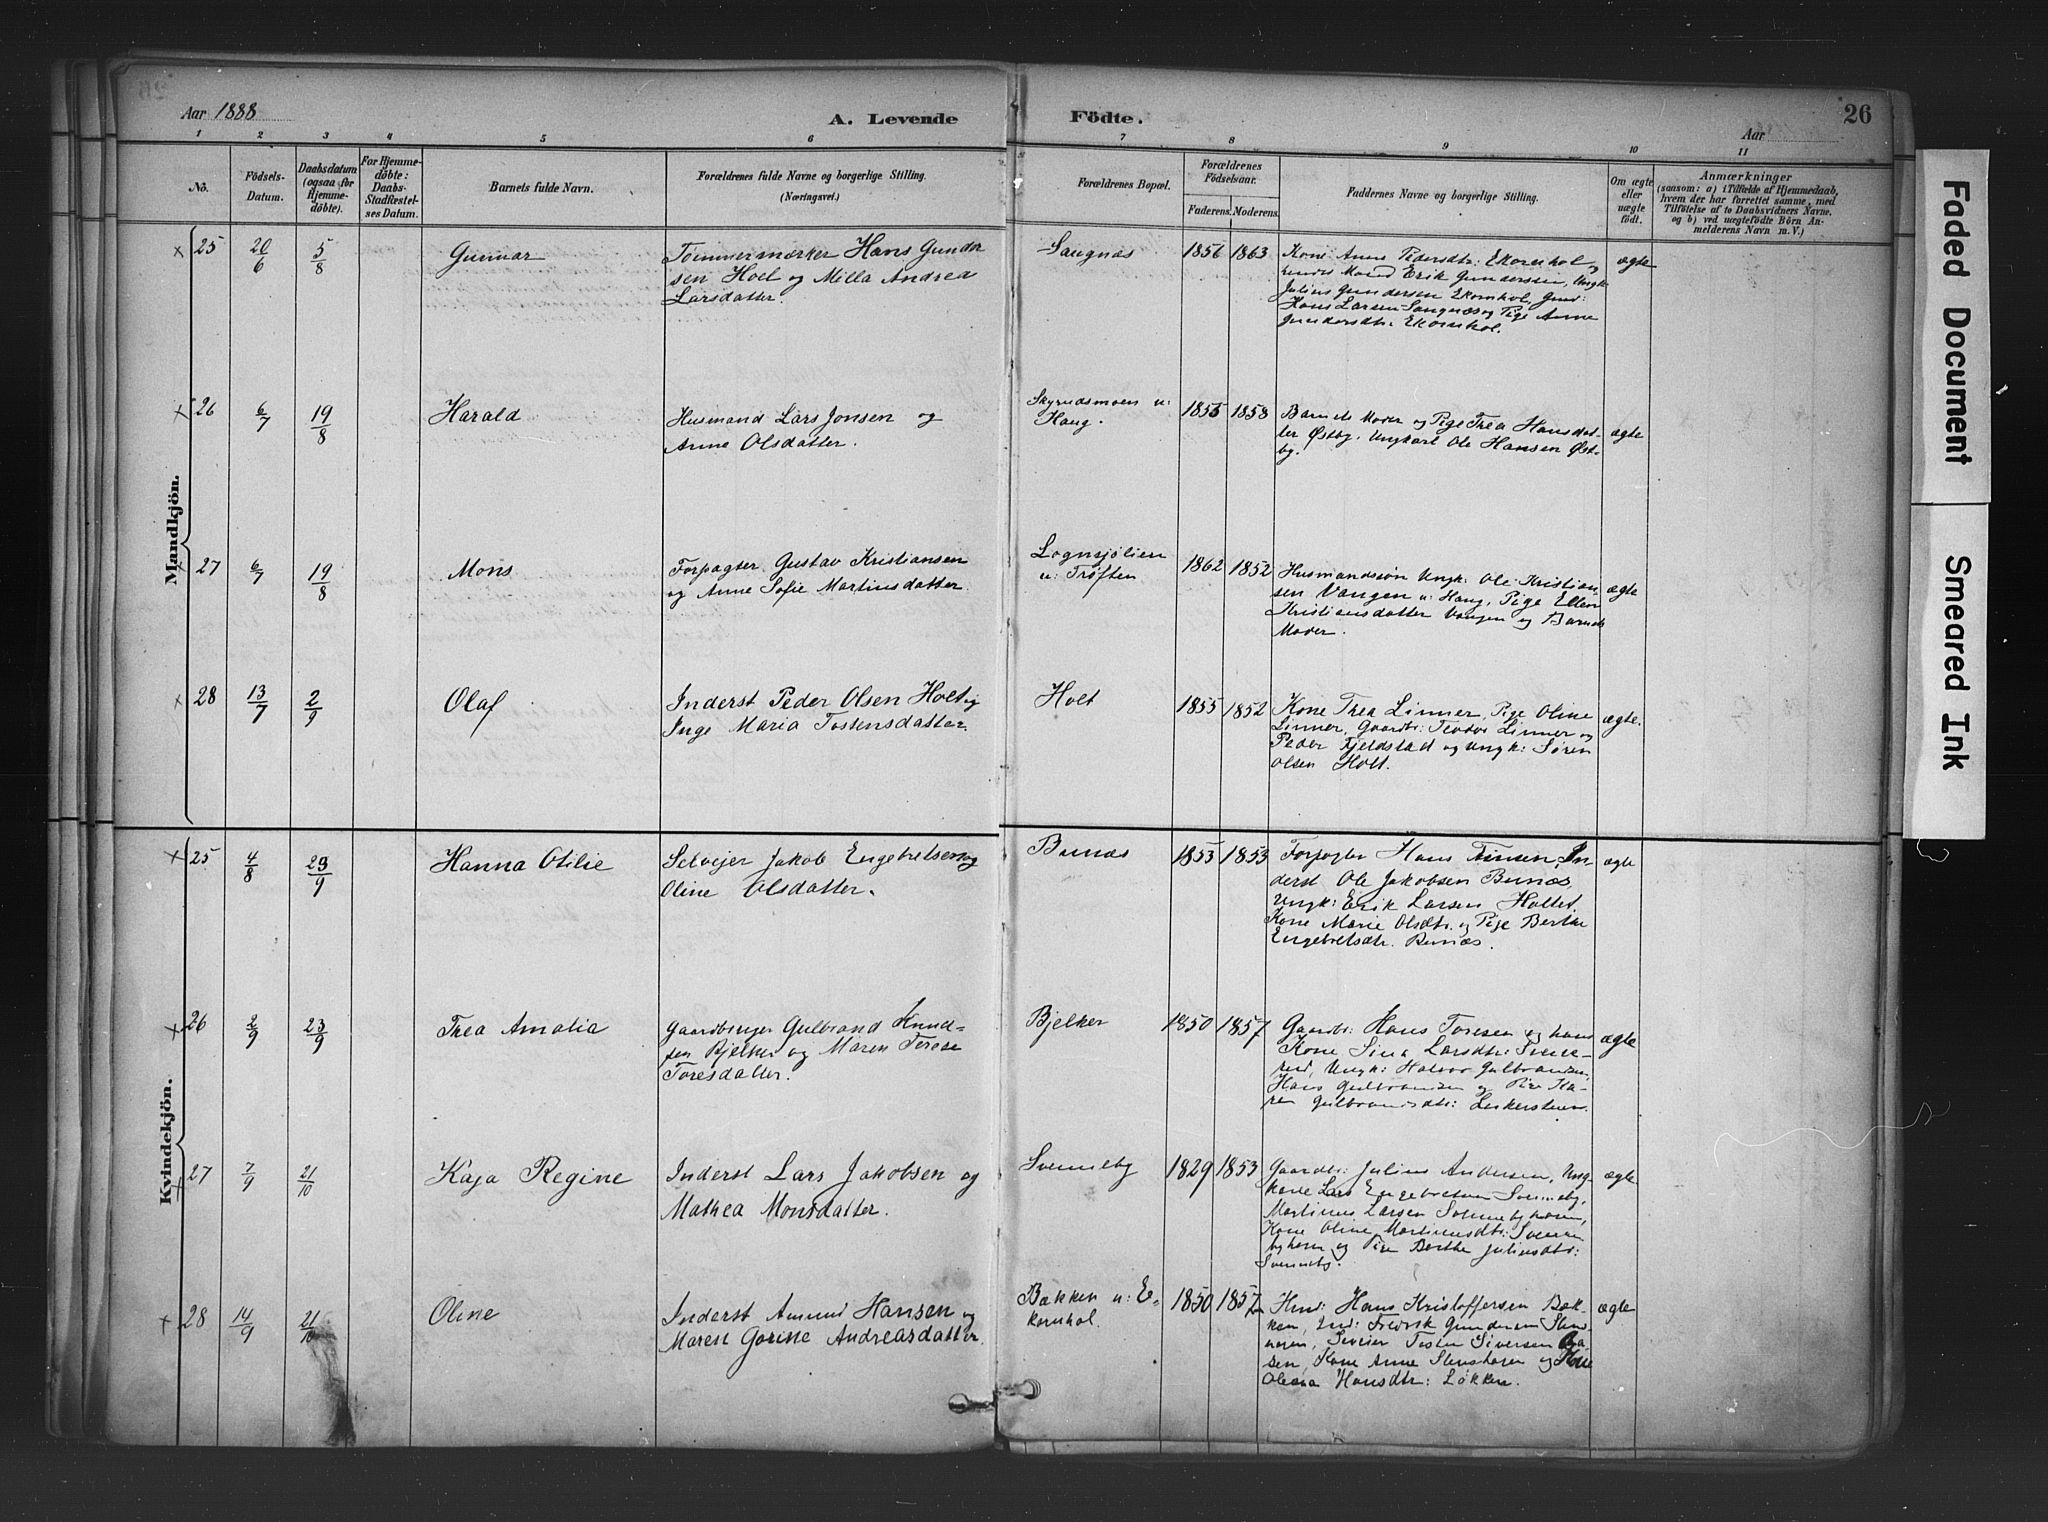 Aar 1888
A. Levende
Födte.
Aar
26
1 2 3 4 5 6 7 8 9 10 11
No.
Födsels-
Datum.
Daabsdatum
(ogsaa for
Hjemme-
döbte).
For Hjemme-
döbte:
Daabs-
Stadfæstel-
ses Datum.
Barnets fulde Navn.
Forældrenes fulde Navne og borgerlige Stilling.
(Næringsvei.)
Forældrenes Bopæl.
Forældrenes
Födselsaar.
Faderens. Moderens.
Faddernes Navne og borgerlige Stilling.
Om ægte
eller
uægte
födt.
Anmærkninger
(saasom: a) i Tilfælde af Hjemmedaab,
hvem der har forrettet samme, med
Tilföielse af to Daabsvidners Navne,
og b) ved uægtefödte Börn An-
melderens Navn m. V.)
Mandkjön.
× 25
20/6
5/8
Gunnar
Tømmermærker Hans Gunder
sen Hoel og Milla Andrea
Larsdatter.
Saugnæs
1856 1863
Kone Anne Pedersdtr: Ekornhol og
hendes Mand Erik Gunderssen, Ungk:
Julius Gundersen Ekornhol, Gmd:
Hans Larsen Saugnæs og Pige Anne
Gundersdtr: Ekornhol.
ægte
× 26
6/7
19/8
Harald
Husmand Lars Jonsen og
Anne Olsdatter.
Skyrudsmoen u:
Haug.
1855 1858
Barnets Moder og Pige Thea Hansdat-
ter Østby. Ungkarl Ole Hansen Øst-
by.
ægte
× 27
6/7
19/8
Mons
Forpagter Gustav Kristiansen
og Anne Sofie Martinusdatter.
Lognsjølien
u: Trøften
1862 1852
Husmandssøn Ungk: Ole Kristian-
sen Vangen u: Haug, Pige Ellen
Kristiansdatter Vangen og Barnets
Moder.
ægte
× 28
13/7
2/9
Olaf
Inderst Peder Olsen Holt og
Inge Maria Tostensdatter.
Holt
1855 1852
Kone Thea Linner, Pige Oline
Linner, Gaardbr: Teodor Linner og
Peder Fjeldstad og Ungk: Søren
Olsen Holt.
ægte.
Kvindekjön.
× 25
4/8
23/9
Hanna Otilie
Selveier Jakob Engebretsen og
Oline Olsdatter.
Bunæs
1853 1853
Forpagter Hans Finsen, In-
derst Ole Jakobsen Bunæs,
Ungk: Erik Larsen Holtet,
Kone Marie Olsdtr. og Pige Berthe
Engebretsdtr. Bunæs.
ægte
× 26
2/9
23/9
Thea Amalia
Gaardbruger Gulbrand Knud-
sen Bjelker og Maren Terese
Toresdatter.
Bjelker
1850 1857
Gaardbr: Hans Toresen og hans
Kone Sina Larsdtr:
Ungk: Halvor Gulbrandsen,
Hans Gulbrandsen og Pige Ka-
ren Gulbrandsdtr:
ægte
× 27
7/9
21/10
Kaja Regine
Inderst Lars Jakobsen og
Mathea Monsdatter.
Svenneby
1829 1853
Gaardbr: Julius Andersen, Ung-
karle Lars Engebretsen Svenneby,
Martinus Larsen Svennebyhorn,
Kone Oline Martinusdtr: Svenne-
byhorn og Pige Berthe Juliusdtr:
Svenneby.
ægte
× 28
14/9
21/10
Oline
Inderst Amund Hansen og
Maren Gorine Andreasdatter.
Bækken u: E-
kornhol.
1850 1857
Hmd: Hans Kristoffersen Bæk-
ken, Ind: Fredrik Gundersen
Selveier Tosten Siversen
Kone Anne og Kone
Olena Hansdtr: Løkken.
ægte
Faded Document
Smeared Ink